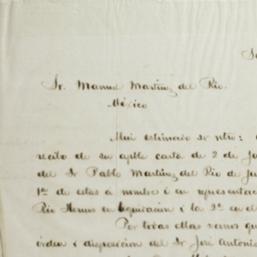 Sr. Manuel Martinez del Rio.
México
Mui estimado sr ntro:
recibo de su aptble carta de 2 de Ju
del Sr Pablo Martinez del Rio de Ju
1º de estas a nombre i en representac
Rio Hermos en liquidacion i la 2ª en el
Por todas ellas vemos que
orden i disposicion del Sr José Antonio